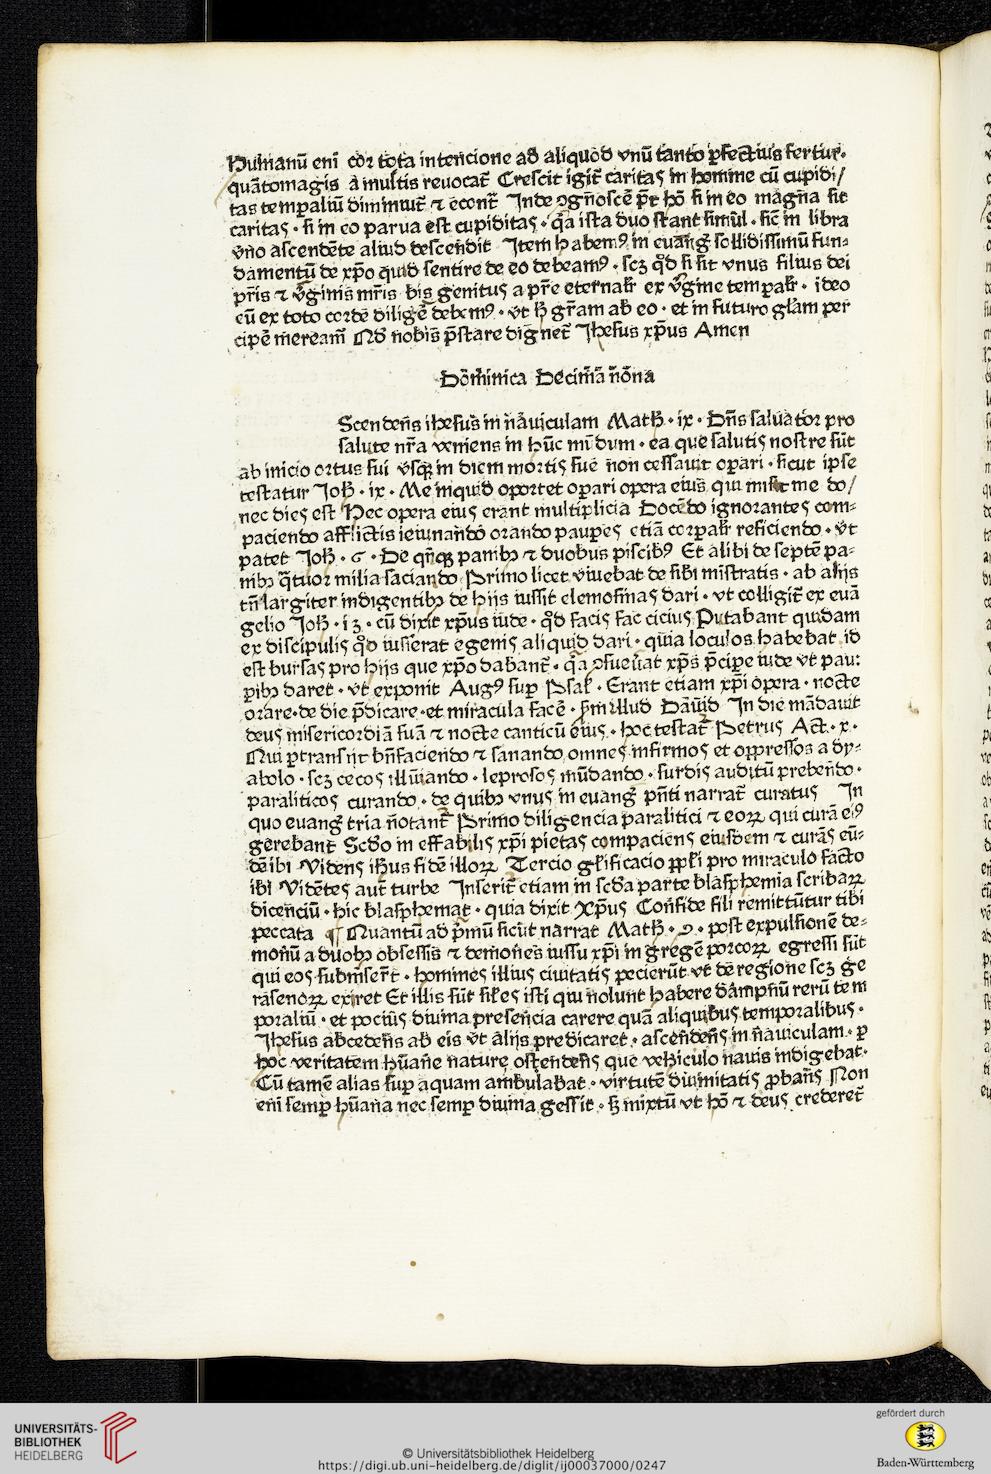 Humanū eni cor tota intencione ad aliquod vnū tanto ꝑfectius fertur·
quātomagis a multis reuocat̄ Crescit igit̄ caritas in homine cū cupidi/
tas tempaliū diminuit̄ ⁊ econt̄ Inde ꝯgnoscē pt̄ hō si in eo magna sit
caritas · si in eo parua est cupiditas · qa ista duo stant simul · sic̄ in libra
vno ascendēte aliud descendit Item habemꝰ in euāg̃ sollidissimū fun-
damentū de xp̄o quid sentire de eo debeamꝰ · scꝫ qd̄ si sit vnus filius dei
pr̄is ⁊ v̓ginis mr̄is bis genitus a pr̄e eternalr̄ ex v̓gine tempalr̄ · ideo
eū ex toto corde diligē debemꝰ · vt hꝭ gr̄am ab eo · et in futuro gl̄am per
cipē meream̄ Qd̄ nobis p̄stare dignet̄ Ihesus xp̄us Amen
Dominica Decima nona
Scendens ihesus in nauiculam Math̄ · ix · Dn̄s saluator pro
salute nr̄a veniens in hūc mūdum · ea que salutis nostre sūt
ab inicio ortus sui vsqꝫ in diem mortis sue non cessauit opari · sicut ipse
testatur Joh̄ · ix · Me inquid oportet opari opera eius qui misit me do/
nec dies est Hec opera eius erant multiplicia Docēdo ignorantes com-
paciendo afflictis ieiunando orando paupes etiā corpalr̄ reficiendo · vt
patet Joh̄ · 6 · De qn̄qꝫ panibꝫ ⁊ duobus piscibꝰ Et alibi de septē pa-
nibꝫ q̄tuor milia saciando Primo licet viuebat de sibi mīstratis · ab alijs
tn̄ largiter indigentibꝫ de hijs iussit elemosinas dari · vt colligit̄ ex euā
gelio Joh̄ · i3 · cū dixit xp̄us iude · qd̄ facis fac cicius Putabant quidam
ex discipulis qd̄ iusserat egenis aliquid dari · quia loculos habebat id
est bursas pro hijs que xp̄o dabant̄ · qa ꝯsueūat xp̄s p̄cipe iude vt pau:
pibꝫ daret · vt exponit Augꝰ sup Psal̄ · Erant etiam xp̄i opera · nocte
orare · de die p̄dicare · et miracula facē · scd̄m illud Dauid In die mādauit
deus misericordiā suā ⁊ nocte canticū eius · hoc testat̄ Petrus Act · x ·
Qui ꝑtransijt bn̄faciendo ⁊ sanando omnes infirmos et oppressos a dy-
abolo · scꝫ cecos illūiando · leprosos mūdando · surdis auditū prebendo ·
paraliticos curando · de quibꝫ vnus in euang̃ pn̄ti narrat̄ curatus In
quo euang̃ tria notant̄ Primo diligencia paralitici ⁊ eoꝝ qui curā eiꝰ
gerebant Scd̄o in effabilis xp̄i pietas compaciens eiusdem ⁊ curās eū-
dē ibi Videns ih̄us fidē illoꝝ Tercio gl̄ificacio ppl̄i pro miraculo facto
ibi Vidētes aut̄ turbe Inserit̄ etiam in scd̄a parte blasphemia scribaꝝ
dicenciū · hic blasphemat · quia dixit Xp̄us Confide fili remittūtur tibi
peccata ¶ Quantū ad pimū sicut narrat Math̄ · 9 · post expulsionē de-
monū a duobꝫ obsessis ⁊ demones iussu xp̄i in gregē porcoꝝ egressi sūt
qui eos submiser̄t · homines illius ciuitatis pecierūt vt de regione scꝫ ge
rasenoꝝ exiret Et illis sūt sil̄es isti qui nolunt habere dampnū rerū tem
poraliū · et pocius diuina presencia carere quā aliquibus temporalibus ·
Ihesus abcedens ab eis vt alijs predicaret · ascendens in nauiculam · ꝑ
hoc veritatem hūane nature ostendens que vehiculo nauis indigebat ·
Cū tamē alias sup aquam ambulabat · virtutē diuinitatis ꝓbans Non
eni semp hūana nec semp diuina gessit · sꝫ mixtū vt hō ⁊ deus crederet̄
UNIVERSITÄTS-
BIBLIOTHEK
HEIDELBERG
© Universitätsbibliothek Heidelberg
https://digi.ub.uni-heidelberg.de/diglit/ij00037000/0247
gefördert durch
Baden-Württemberg